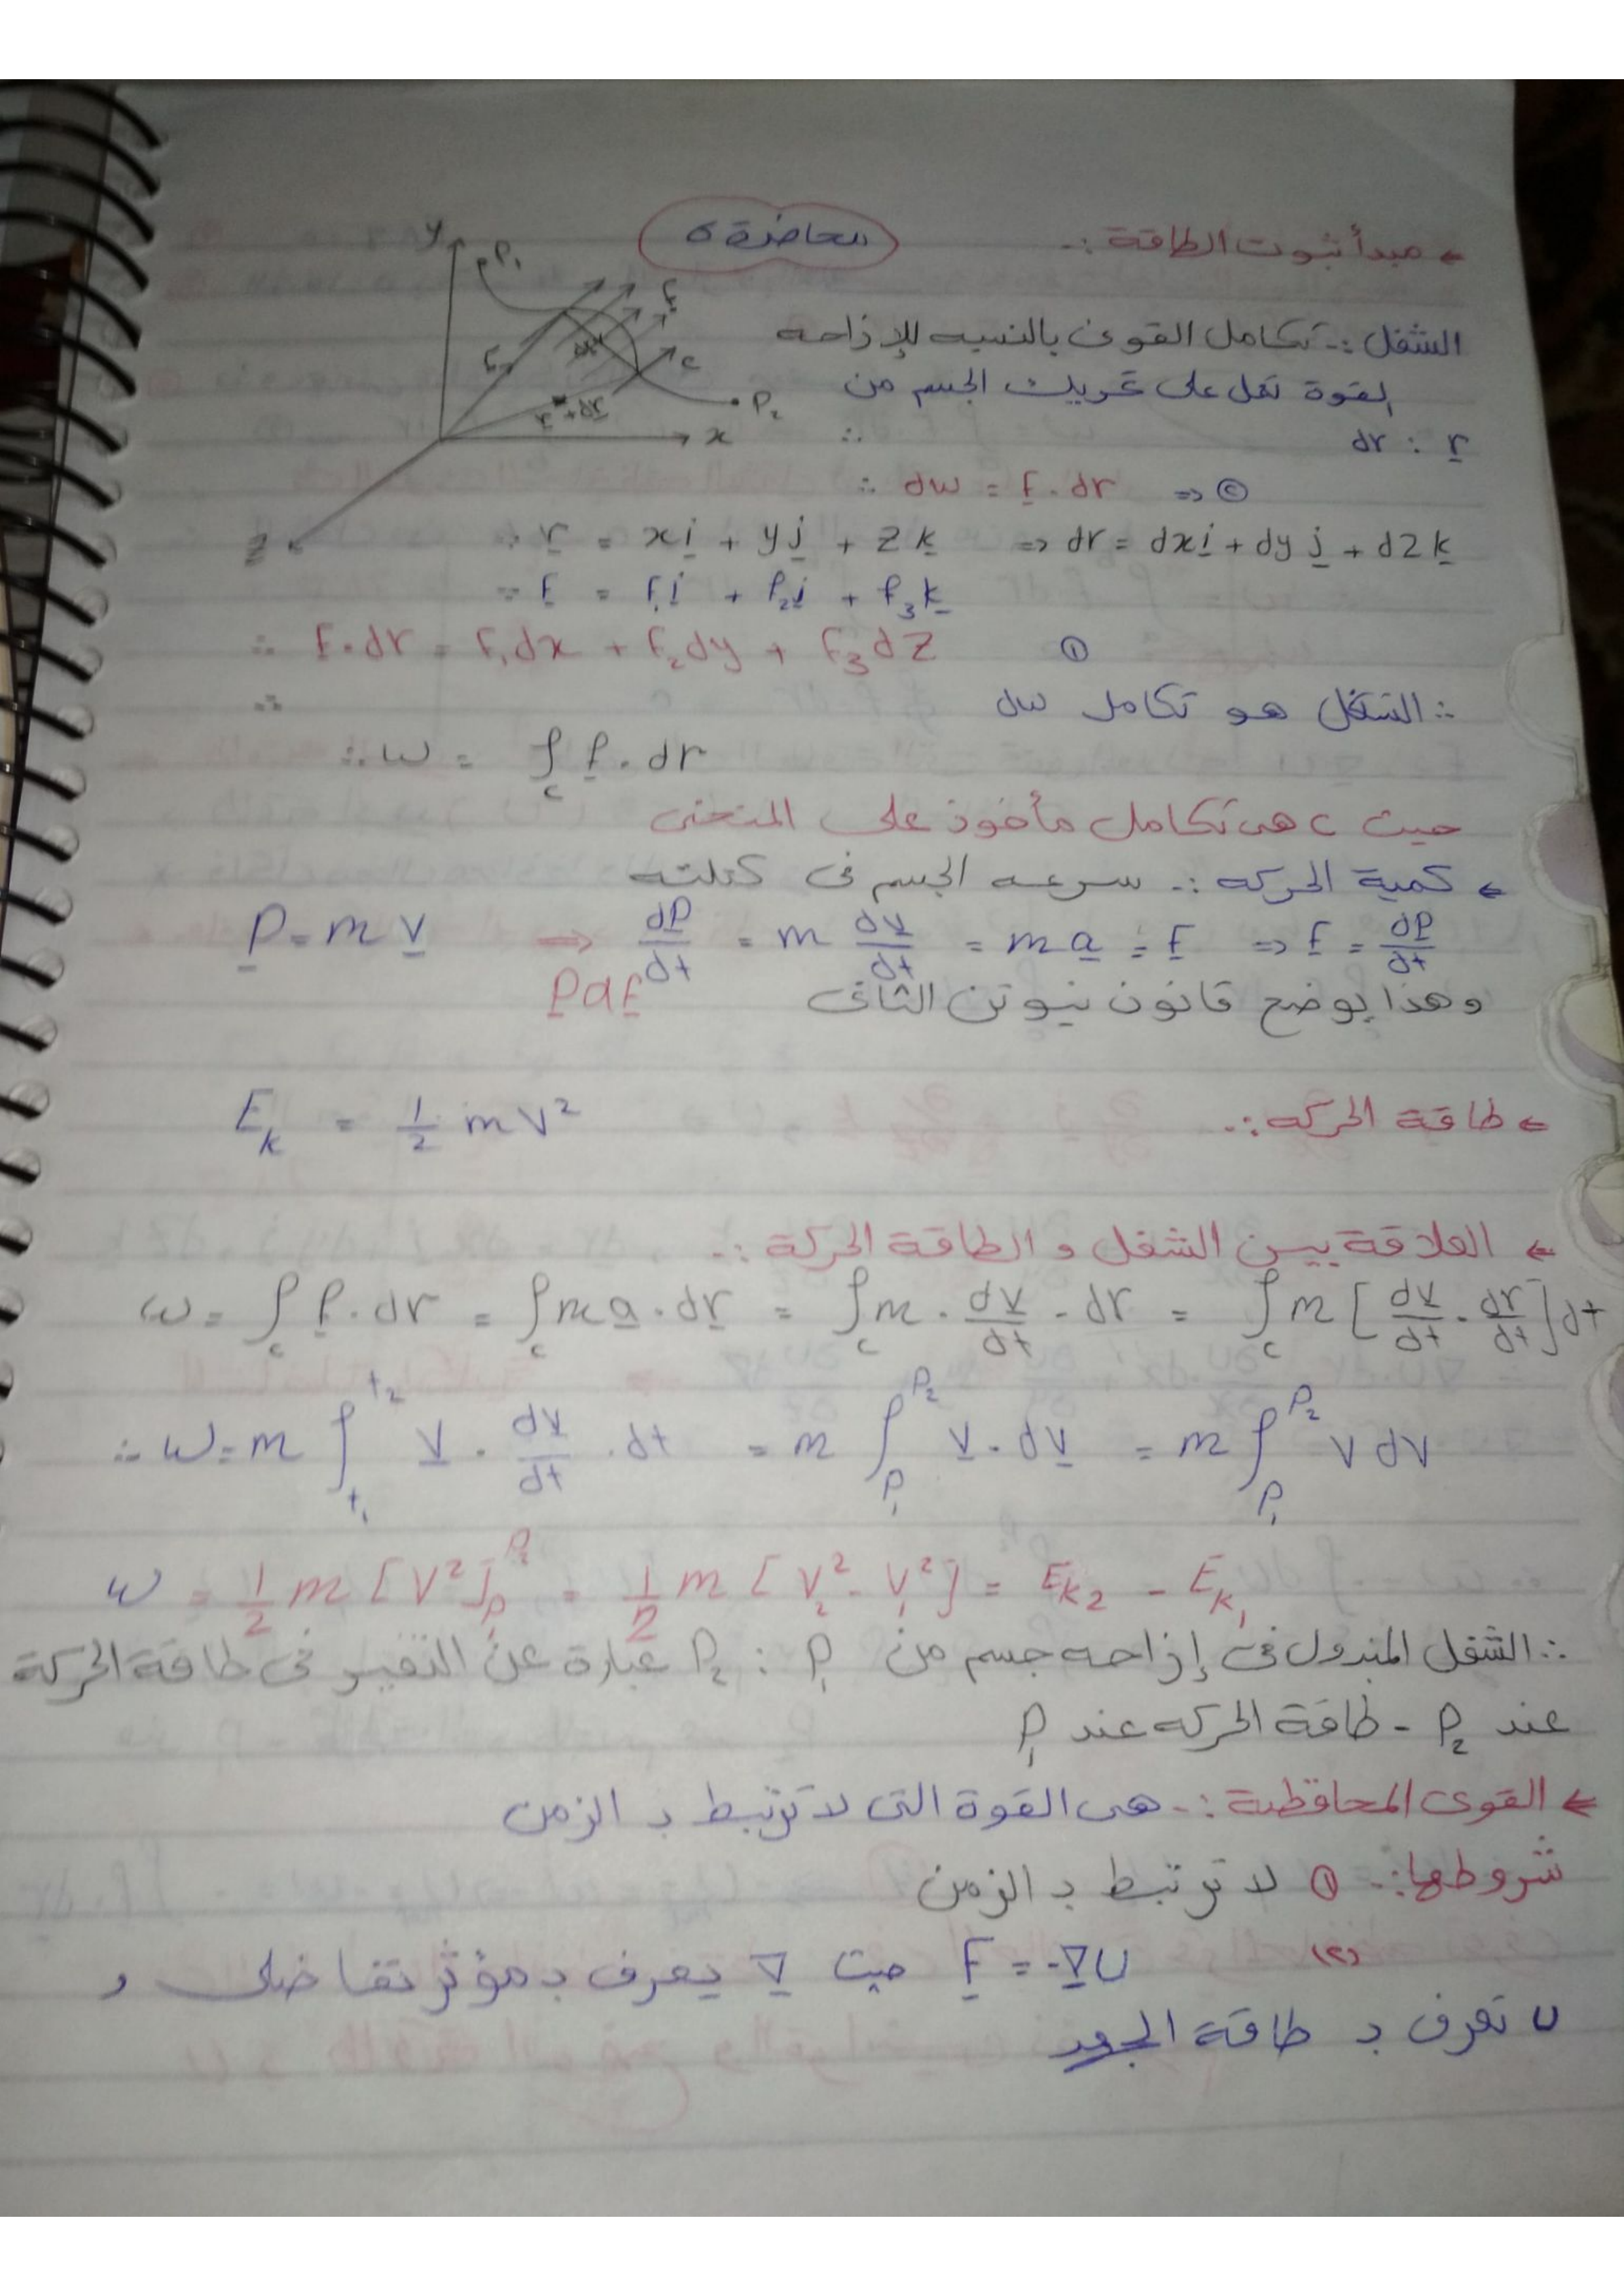 محاضرة ٥
← مبدأ ثبوت الطاقة :-
y P₁ F r dr c r+dr P₂ x
الشغل :- تكامل القوى بالنسبه للإزاحه
القوة تعل على تحريك الجسم من
dr : r
∴ dw = F . dr ⇒ ②
∵ r = xi + yj + zk ⇒ dr = dxi + dyj + dzk
∵ F = F₁i + F₂j + F₃k
∴ F . dr = F₁dx + F₂dy + F₃dz ①
∴ الشغل هو تكامل dw
∴ w = ∫c F . dr
حيث c هى تكامل مأخوذ على المنحنى
← كمية الحركه :- سرعه الجسم فى كتلته
P = mv ⇒ dP/dt = m dv/dt = ma = F ⇒ F = dP/dt
وهذا يوضح قانون نيوتن الثانى PαF
← طاقة الحركه :- E_k = 1/2 mv²
← العلاقة بين الشغل و الطاقة الحركة :-
w = ∫c F . dr = ∫c ma . dr = ∫c m . dv/dt . dr = ∫c m [dv/dt . dr/dt] dt
∴ w = m ∫t₁^t₂ v . dv/dt . dt = m ∫P₁^P₂ v . dv = m ∫P₁^P₂ v dv
w = 1/2 m [v²]P₁^P₂ = 1/2 m [v₂² - v₁²] = E_k₂ - E_k₁
∴ الشغل المبذول فى إزاحه جسم من P₁ : P₂ عبارة عن التغير فى طاقة الحركة
عند P₂ - طاقة الحركه عند P₁
← القوى المحافظة :- هى القوة التى لا ترتبط بـ الزمن
شروطها :- ① لا ترتبط بـ الزمن
(٢) F = -∇U حيث ∇ يعرف بـ مؤثر تفاضلى و
U تعرف بـ طاقة الجهد